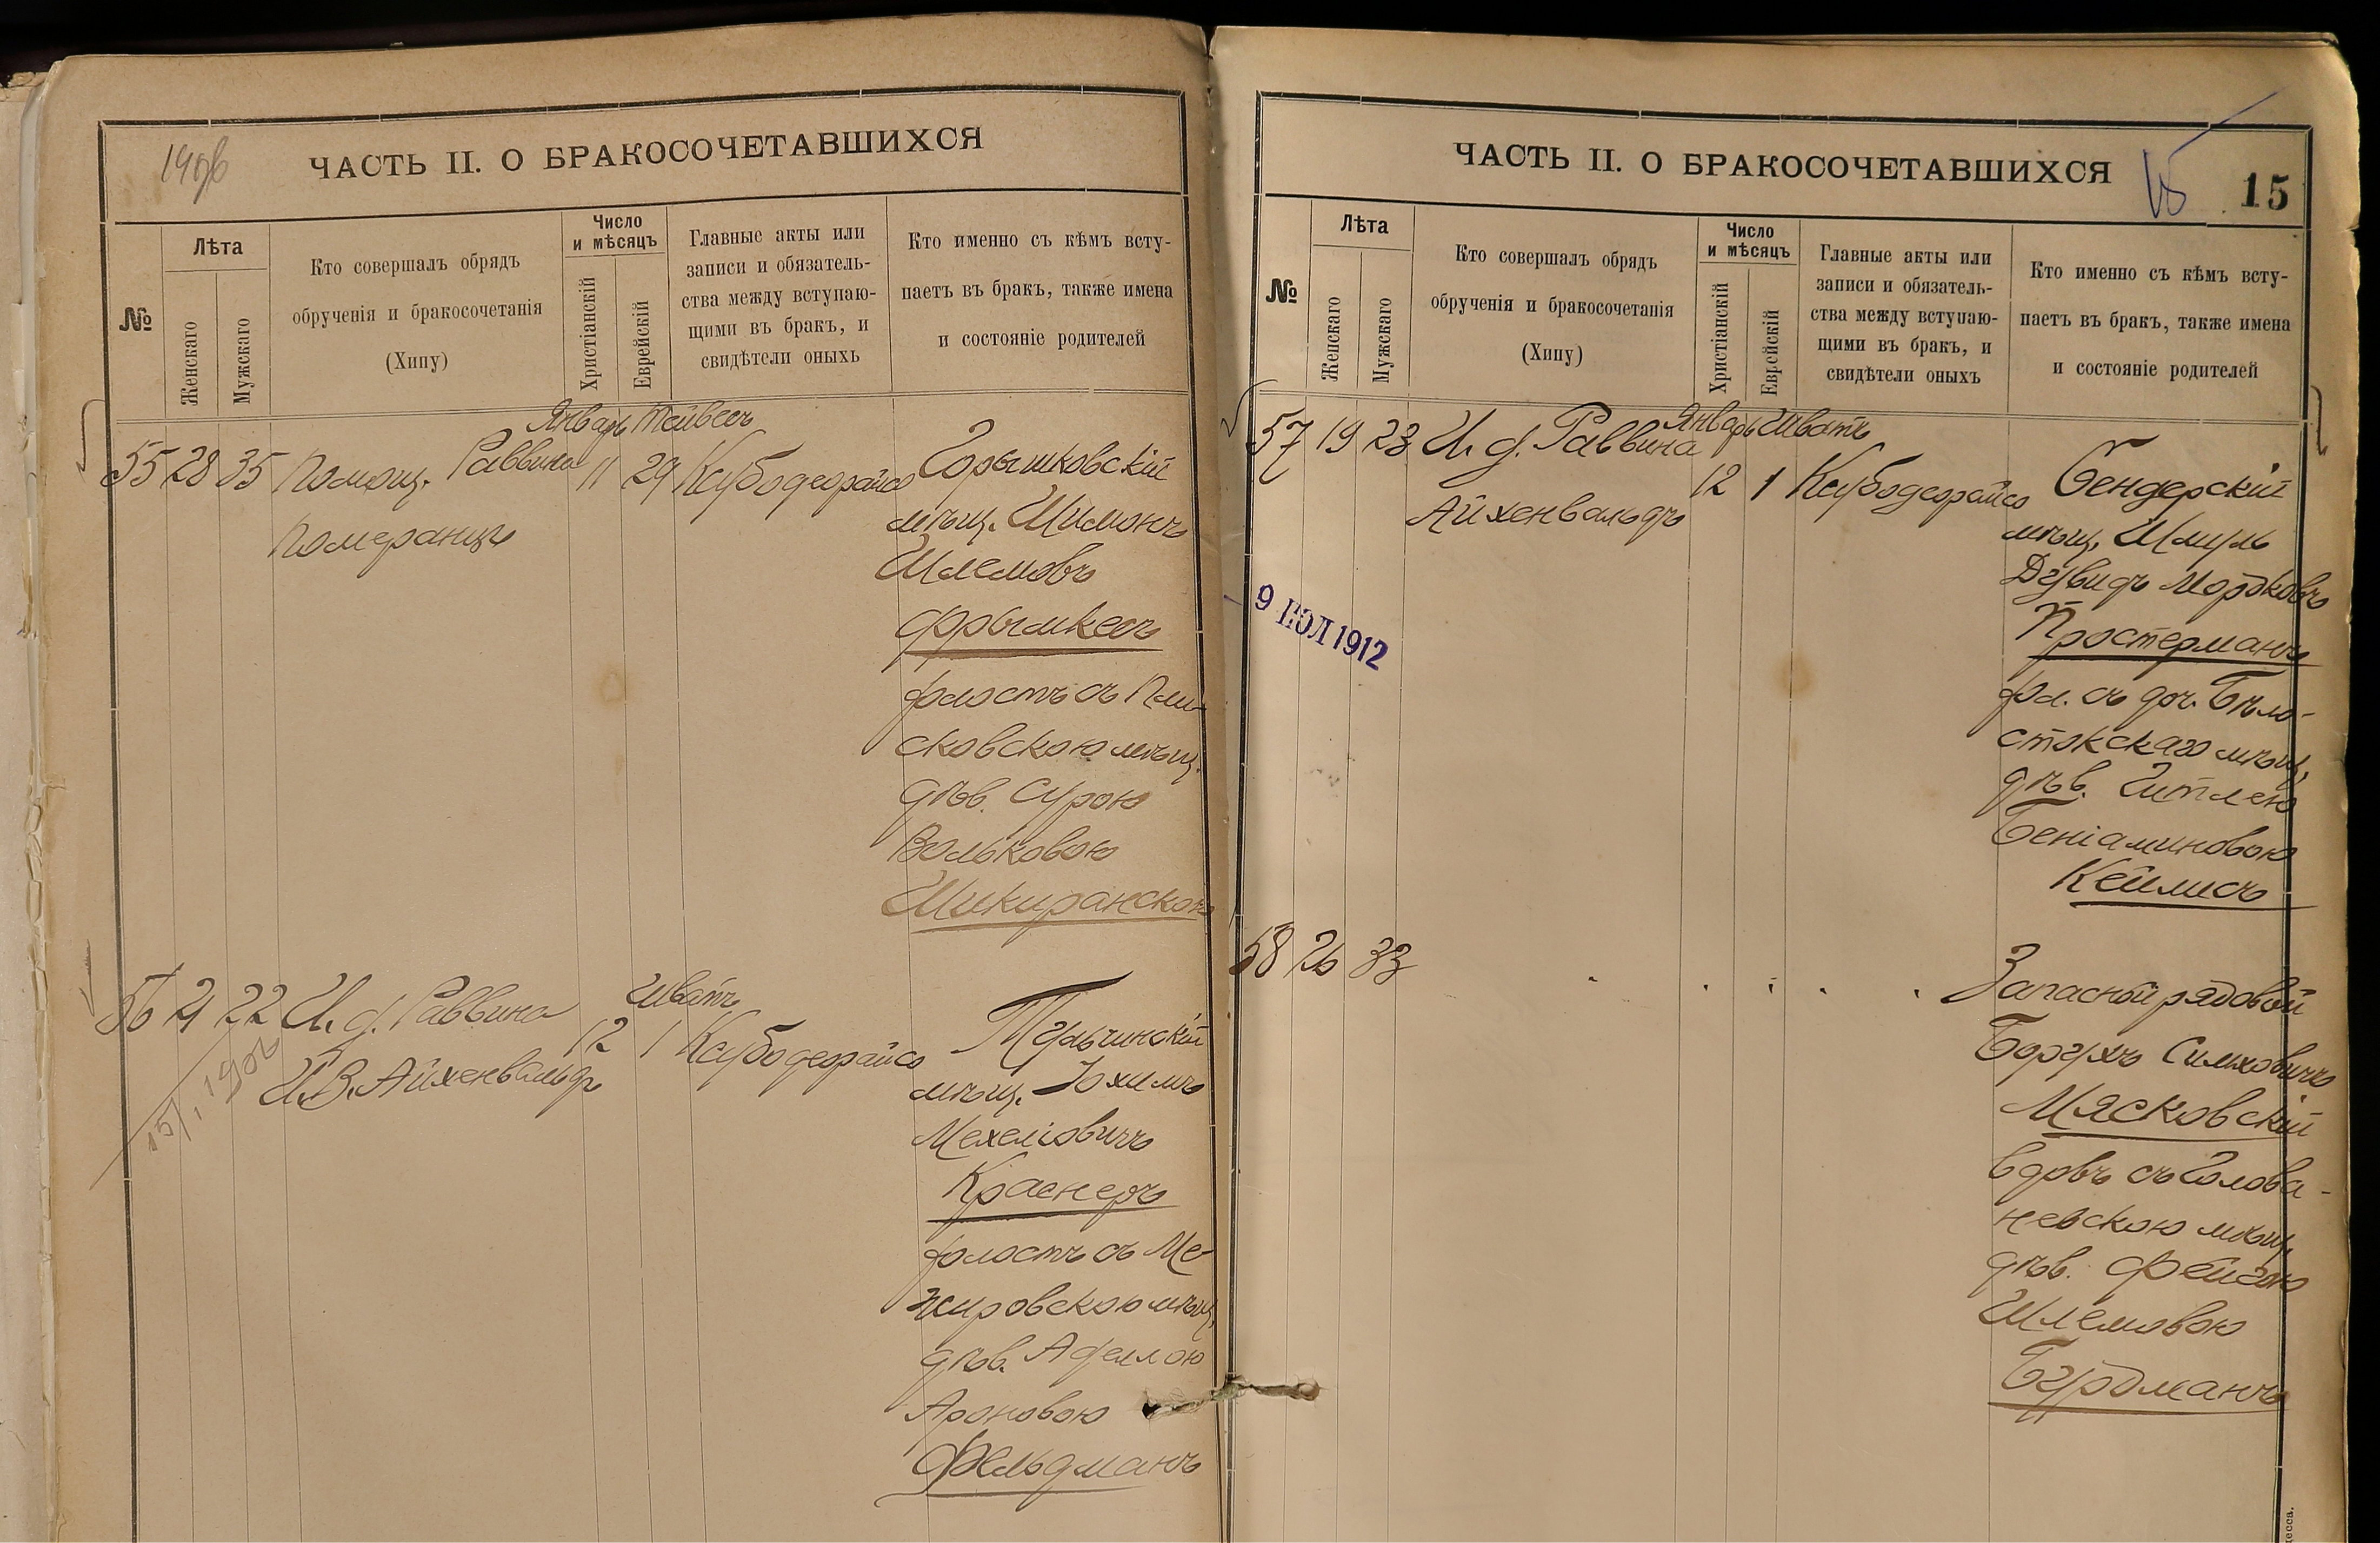 1906
ЧАСТЬ II. О БРАКОСОЧЕТАВШИХСЯ
№
Лѣта
Женскаго
Мужскаго
Кто совершалъ обрядъ
обрученія и бракосочетанія
(Хипу)
Число
и мѣсяцъ
Христіанскій
Еврейскій
Главные акты или
записи и обязатель-
ства между вступаю-
щими въ бракъ, и
свидѣтели оныхъ
Кто именно съ кѣмъ всту-
паетъ въ бракъ, также имена
и состояніе родителей
Январь Тейвесъ
55 28 35 Помощ. Раввина 11 29 Ксубодеорайсо
Померанцъ
Горышковскій
мѣщ. Шимонъ
Шлемовъ
Фрымкесъ
холостъ съ Пли-
сковскою мѣщ.
дѣв. Сурою
Вольковою
Шикиранскою
Шватъ
56 21 22 И. д. Раввина 12 1 Ксубодеорайсо
И.В. Айхенвальдъ
Тульчинскій
мѣщ. Іохимъ
Мехелiовичъ
Краснеръ
холостъ съ Ме-
жировскою мѣщ.
дѣв. Аделлою
Ароновою
Фельдманъ
ЧАСТЬ II. О БРАКОСОЧЕТАВШИХСЯ
15
№
Лѣта
Женскаго
Мужскаго
Кто совершалъ обрядъ
обрученія и бракосочетанія
(Хипу)
Число
и мѣсяцъ
Христіанскій
Еврейскій
Главные акты или
записи и обязатель-
ства между вступаю-
щими въ бракъ, и
свидѣтели оныхъ
Кто именно съ кѣмъ всту-
паетъ въ бракъ, также имена
и состояніе родителей
Январь Шватъ
57 19 23 И. д. Раввина 12 1 Ксубодеорайсо
Айхенвальдъ
9 ІЮЛ 1912
Бендерскій
мѣщ. Шмуль
Дувидъ Мордковъ
Простерманъ
хол. съ доч. Бѣло-
стокскаго мѣщ.
дѣв. Гитлею
Беніаминовою
Кеймисъ
58 26 33
Запасной рядовой
Борухъ Симховичъ
Мясковскій
вдовъ съ Голова-
невскою мѣщ.
дѣв. Фейгою
Шлемовою
Бурдманъ